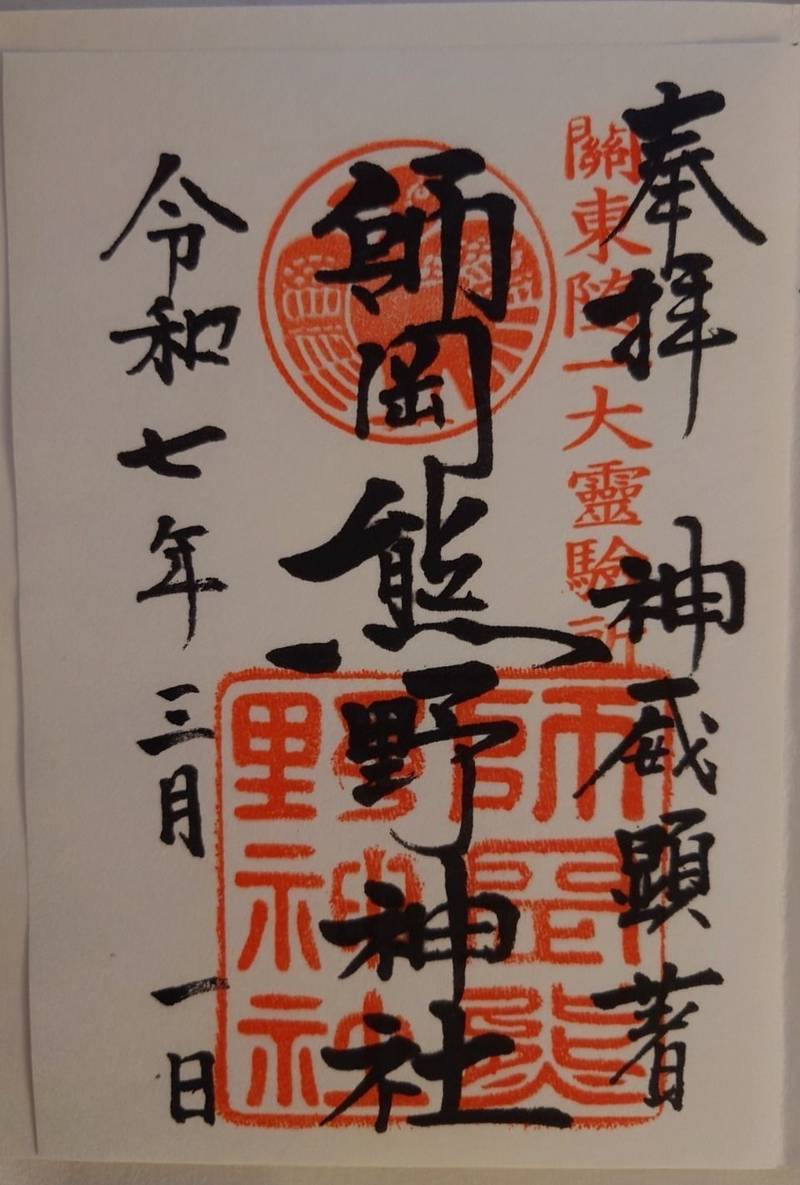 奉拝 神威顕著
關東随一大靈驗所
師岡熊野神社
師岡熊野神社
令和七年三月一日